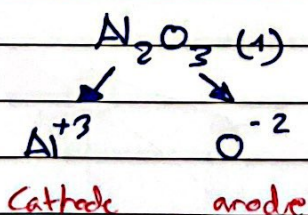 Al₂O₃ (1)
Al⁺³ O⁻²
Cathode anode